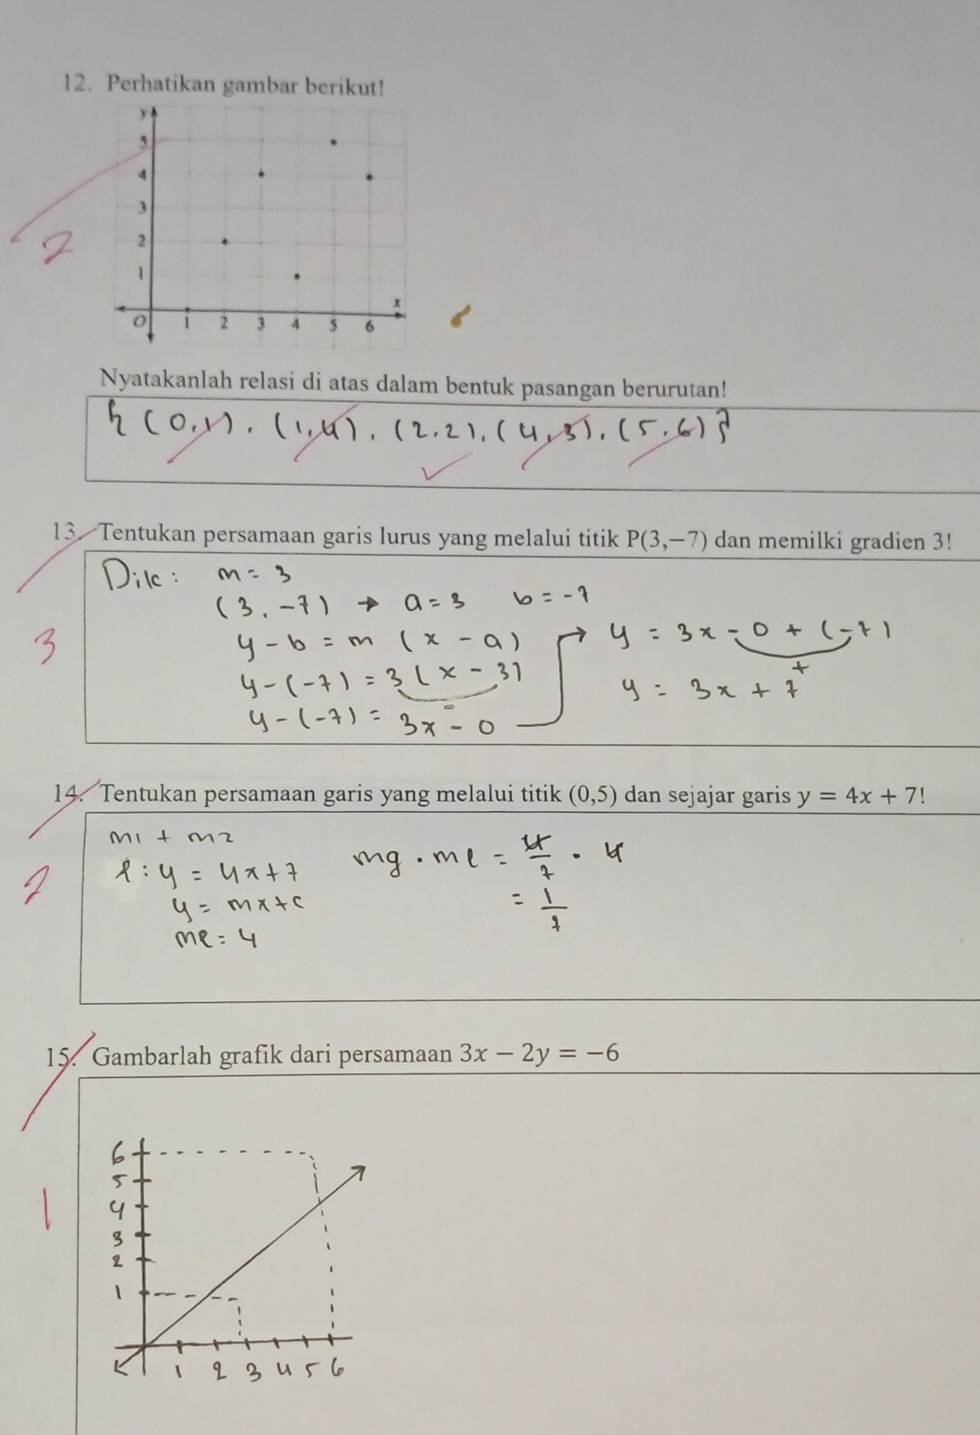 12. Perhatikan gambar berikut!
y
5
4
3
2
1
x
O 1 2 3 4 5 6
2
Nyatakanlah relasi di atas dalam bentuk pasangan berurutan!
{ (0,1), (1,4), (2,2), (4,3), (5,6) }
13. Tentukan persamaan garis lurus yang melalui titik P(3,−7) dan memilki gradien 3!
Dik: m = 3
(3, -7) → a = 3 b = -7
y - b = m (x - a)
y - (-7) = 3 (x - 3)
y - (-7) = 3x - 0
y = 3x - 0 + (-7)
y = 3x + 7
3
14. Tentukan persamaan garis yang melalui titik (0,5) dan sejajar garis y = 4x + 7!
m1 + m2
l : y = 4x + 7
y = mx + c
ml = 4
mg . ml = 4/7 . 4
= 1/7
2
15. Gambarlah grafik dari persamaan 3x − 2y = −6
1
6
5
4
3
2
1
1 2 3 4 5 6